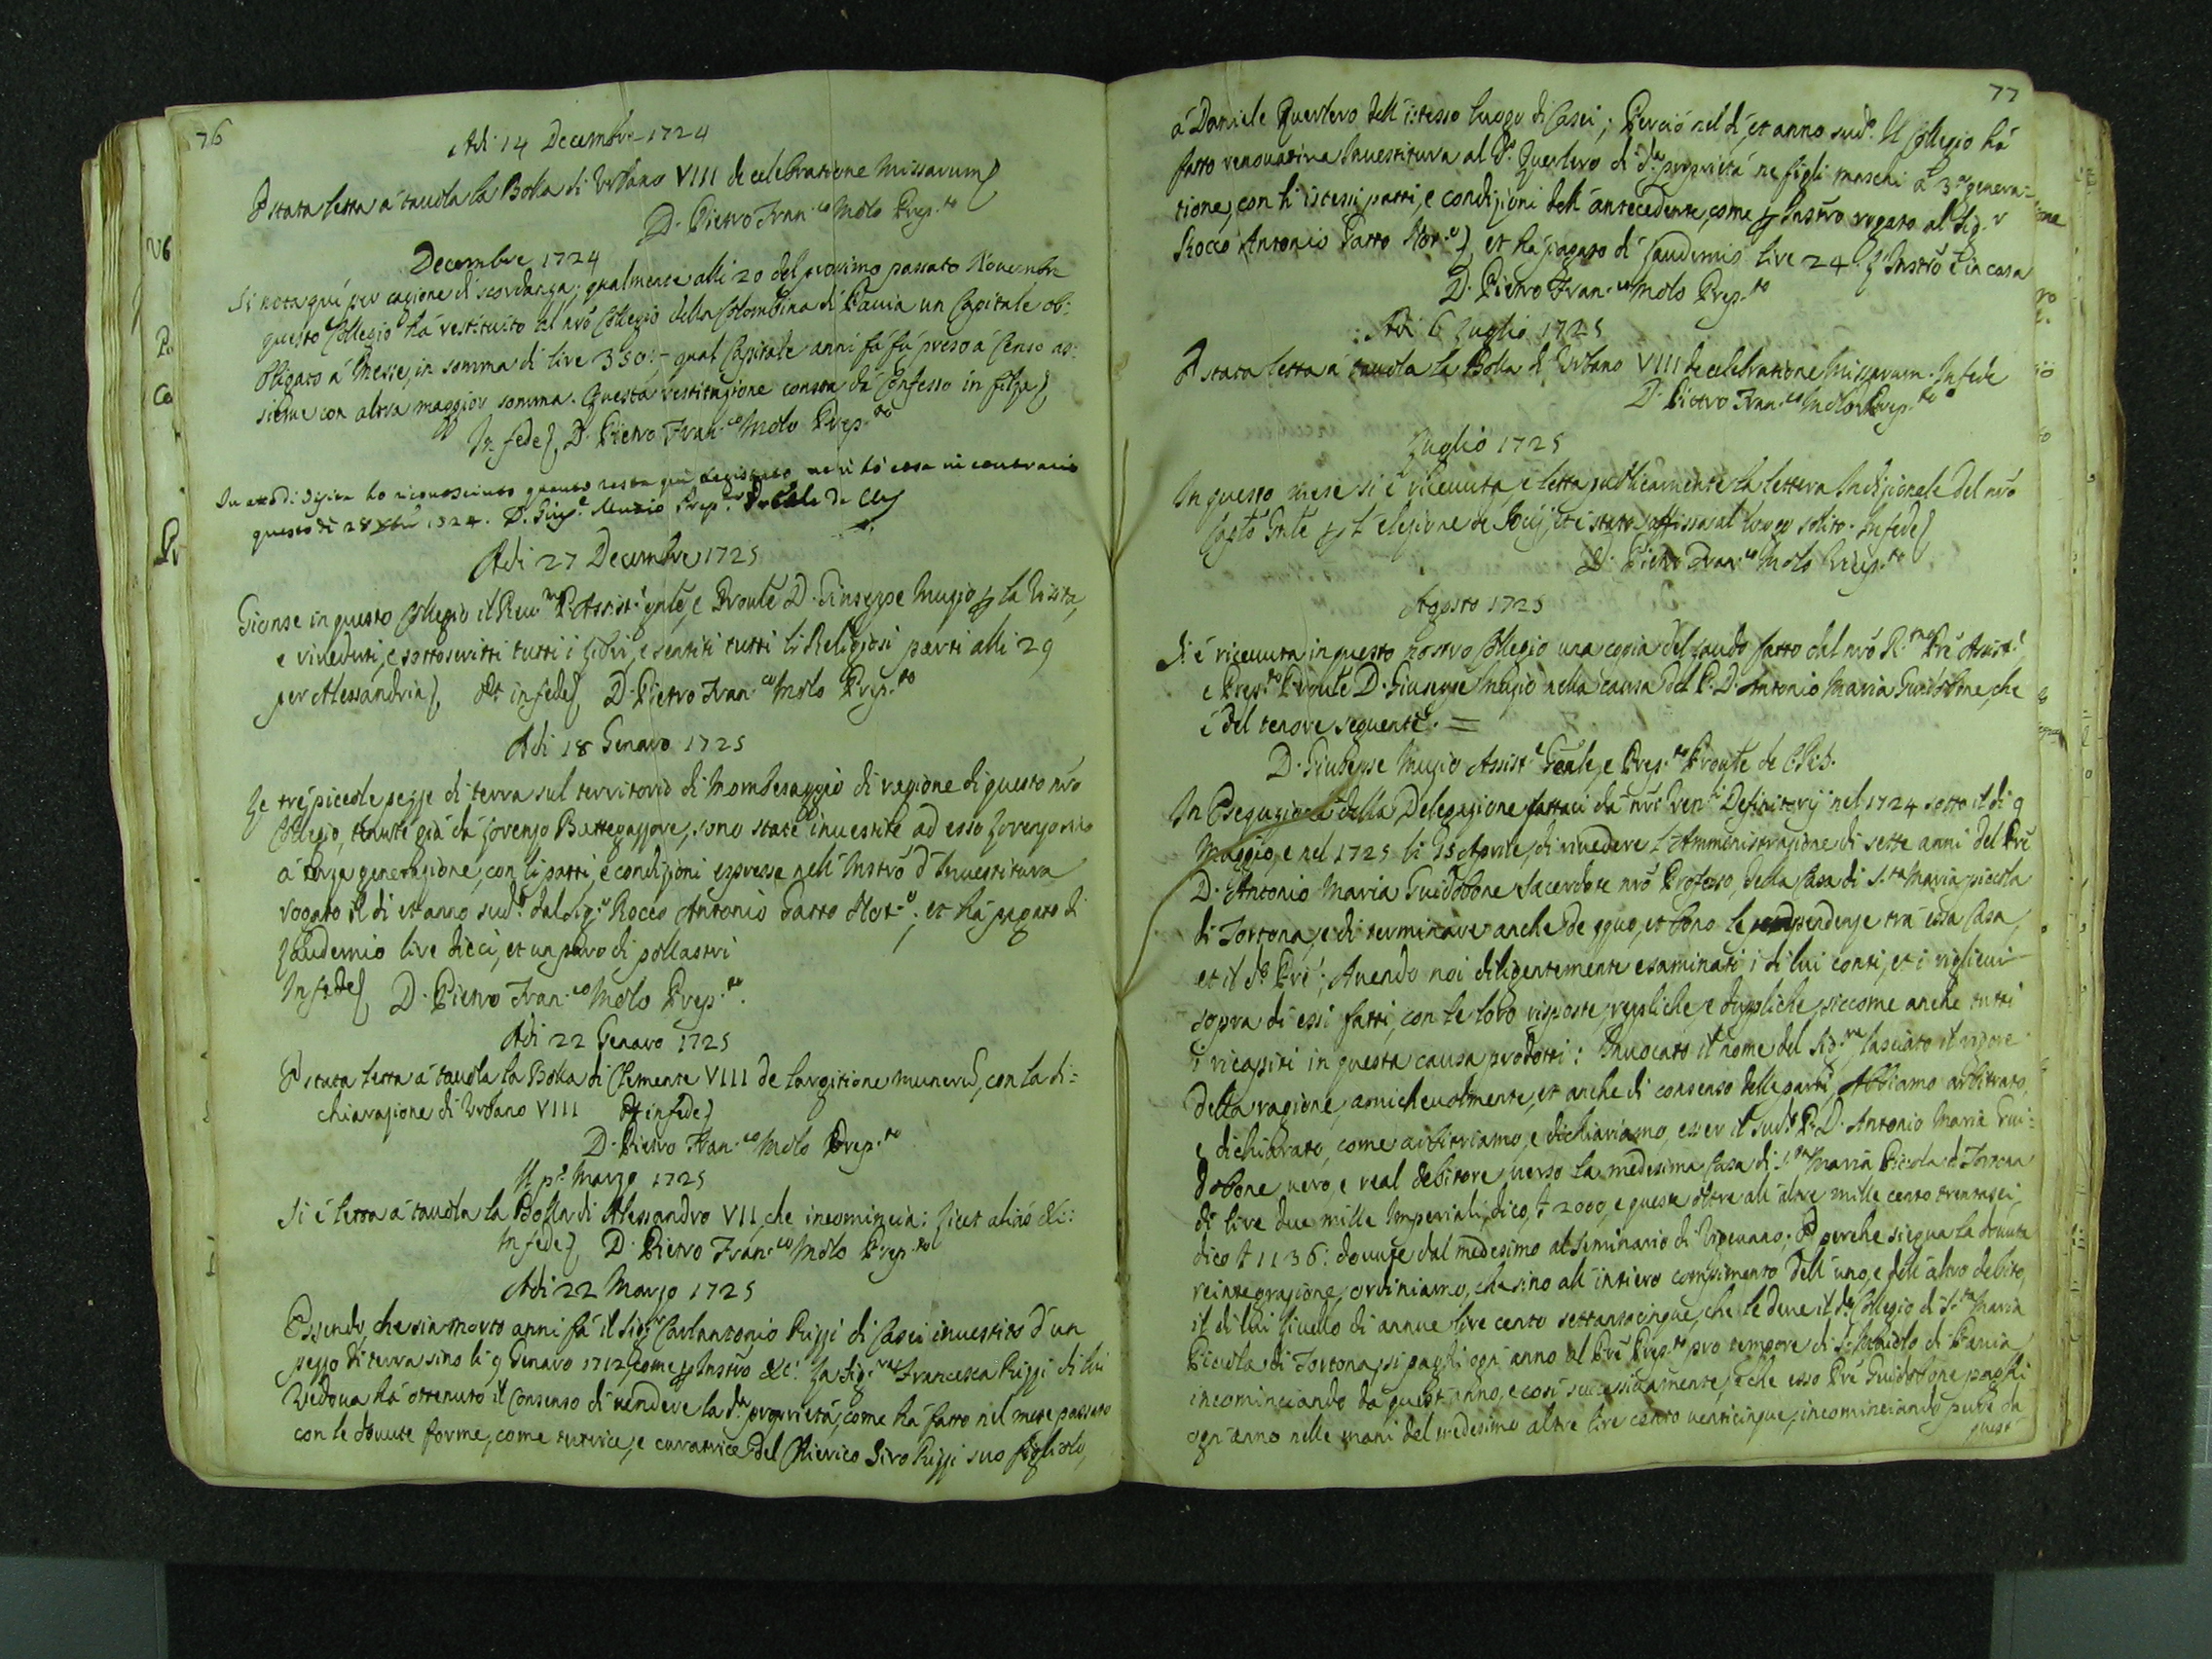 76
Adi 14 Decembre 1724
È stata letta à tauola la Bolla di Vrbano VIII de celebratione Missarum
D. Pietro Fran.co Molo Prep.to
Decembre 1724
Si nota quì per cagione di scordanza; qualmente alli 20 del prossimo passato Nouembre
questo Collegio hà restituito al nrõ Collegio della Colombina di Pauia un Capitale ob:
bligato à Messe, in somma di lire 350:- qual Capitale anni fà fù preso à Censo as:
sieme con altra maggior somma. Questa restituzione consta dà Confesso in filza,
In fede D. Pietro Fran.co Molo Prep.to
In atto di visita ho riconosciuto quanto resta quì registrato
questo dì 28 Xbre 1724. D. Gius.e Muzio Prep.to
Adi 27 Decembre 1725
Gionse in questo Collegio il Reu.mo P. Assist.e gnle, e Proule D. Giuseppe Muzio la Visita,
e riueduti, e sottoscritti tutti i Libri, e sentiti tutti li Religiosi partì alli 29
per Alessandria, Et in fede, D. Pietro Fran.co Molo Prep.to
Adi 18 Genaro 1725
Le trè piccole pezze di terra sul territorio di Mombesaggio di ragione di questo nrõ
Collegio, tenute già dà Lorenzo Buttegazzore, sono state inuestite ad esso Lorenzo
à terza generazione, con li patti, e condizioni espresse nell'Instrõ d'Inuestitura
rogato il dì et anno sud.o dal Sig.r Rocco Antonio Gatto Not.o; et hà pagato di
Laudemio lire dieci, et un paro di pollastri
In fede, D. Pietro Fran.co Molo Prep.to.
Adi 22 Genaro 1725
È stata letta à tauola la Bolla di Clemente VIII de largitione munerũ, con la di=
chiarazione di Vrbano VIII Et in fede
D. Pietro Fran.co Molo Prep.to
Il p.o Marzo 1725
Si è letta à tauola la Bolla di Alessandro VII, che incomincia: Licet aliàs &c:
In fede, D. Pietro Fran.co Molo Prep.to
Adi 22 Marzo 1725
Essendo, che sia morto anni fà il Sig.r Carlantonio Rizzi di Casei inuestito d'un
pezzo di terra sino li 9 Genaro 1712, come Instrõ &c: La Sig.ra Francesca Rizzi di lui
Vedoua hà ottenuto il Consenso di vendere la d.a proprietà, come hà fatto nel mese passato
con le douute forme, come tutrice, e curatrice del Chierico Siro Rizzi suo figliolo,
77
à Daniele Querlero dell'istesso luogo di Casei; Perciò nel dì, et anno sud.o Il Collegio hà
fatto renouatiua Inuestitura al d.o Querlero di d.a proprietà ne figli maschi à 3.a genera=
tione, con li istessi patti, e condizioni dell'antecedente, come Instrõ rogato al Sig.r
Rocco Antonio Gatto Not.o, et hà pagato di Laudemio lire 24. L'Instrõ è in casa
D. Pietro Fran.co Molo Prep.to
Adi 6 Luglio 1725
È stata letta à tauola la Bolla di Vrbano VIII de celebratione Missarum. In fede
D. Pietro Fran.co Molo Prep.to
Luglio 1725
In questo mese si è riceuuta e letta publicamente la lettera Indizionale del nrõ
Capto Gnle l'elezione de Socij, et è stata affissa al luogo solito. In fede
D. Pietro Fran.co Molo Prep.to
Agosto 1725
Si è riceuuta in questo nostro Collegio una copia del Laudo fatto dal nrõ R.mo Prẽ Assist.e
e Prep.to Proule D. Giuseppe Muzio nella causa del P. D. Antonio Maria Guidobone, che
è del tenore seguente. =
D. Giuseppe Muzio Assist.e Gnale, e Prep.to Proule de Ch. R.
In Esequzione della Delegazione fattaci dà nrĩ Ven.di Definitorij nel 1724 sotto il dì 9
Maggio, e nel 1725 li 15 Aprile, di riuedere l'Amministrazione di sette anni del Prẽ
D. Antonio Maria Guidobone Sacerdote nrõ Professo, della Casa di S.ta Maria piccola
di Tortona, e di terminare anche de equo, et bono le pendenze trà essa Casa,
et il d.o Prẽ; Auendo noi diligentemente esaminati i di lui conti, et i riglieui
sopra di essi fatti, con le loro risposte, repliche, e dupliche, siccome anche tutti
i ricapiti in questa causa prodotti: Inuocato il nome del Sig.re lasciato il rigore
della ragione, amicheuolmente, et anche di consenso delle parti, Abbiamo arbitrato,
e dichiarato, come arbitriamo, e dichiariamo, esser il sud.o P. D. Antonio Maria Gui=
dobone uero, e real debitore uerso la medesima Casa di S.ta Maria Piccola di Tortona
di lire due mille Imperiali, dico, £ 2000, e queste oltre all'altre mille cento trentasei
dico £ 1136: douute dal medesimo al Seminario di Vigeuano; E perche siegua la douuta
reintegrazione, ordiniamo, che sino all'intiero compimento dell'uno, e dell'altro debito,
il di lui liuello di annue lire cento settantacinque, che le deue il d.o Collegio di S.ta Maria
Piccola di Tortona, si paghi ogni anno al Prẽ Prep.to pro tempore di S. Maiolo di Pauia
incominciando dà quest'anno, e così successiuamente, e che esso Prẽ Guidobone paghi
ogn'anno nelle mani del medesimo altre lire cento uenticinque, incominciando pure dà
quest'